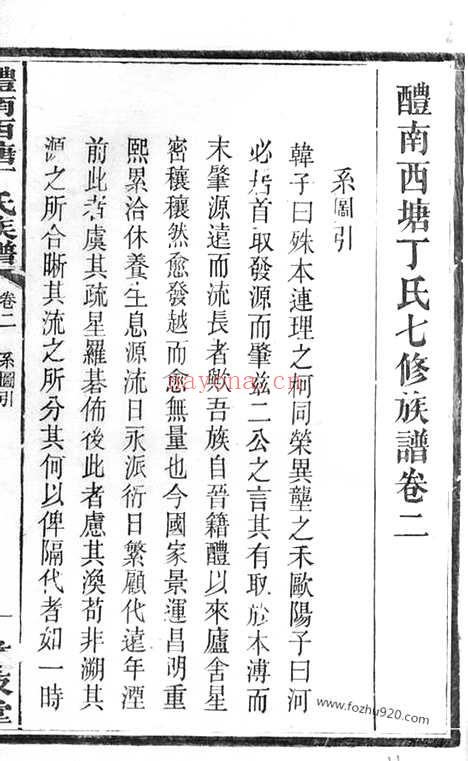 醴南西塘丁氏七修族譜卷二
系圖引
韓子曰殊本連理之柯同榮異壟之禾歐陽子曰河
必指首取發源而肇茲二公之言其有取於本溥而
末肇源遠而流長者歟吾族自晉籍醴以來廬舍星
密穰穰然愈發越而愈無量也今國家景運昌明重
熙累洽休養生息源流日永派衍日繁顧代遠年湮
前此者虞其疏星羅碁佈後此者慮其渙苟非溯其
源之所合晰其流之所分其何以俾隔代者如一時
醴南西塘丁氏族譜
卷二
系圖引
一
nayona.cn
www.fozhu920.com